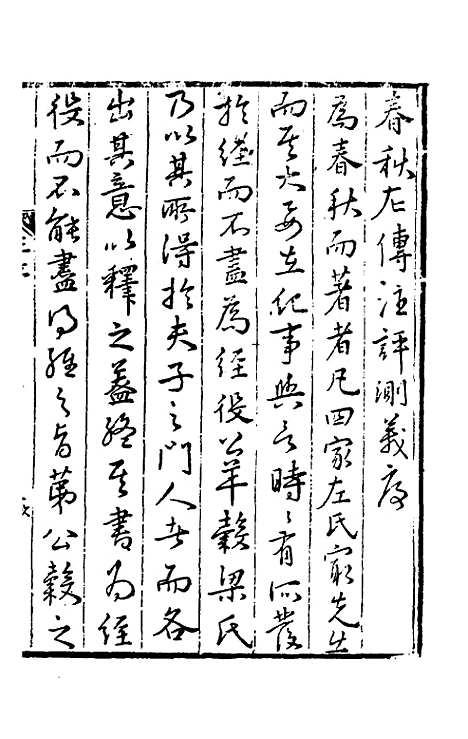 春秋左傳注評測義序
為春秋而著者凡四家左氏最先生
而其大要在紀事與言時時有所發
於經而不盡為經役公羊穀梁氏
乃以其所得於夫子之門人者而各
出其意以釋之蓋終其書為經
役而不能盡得經之旨第公穀之